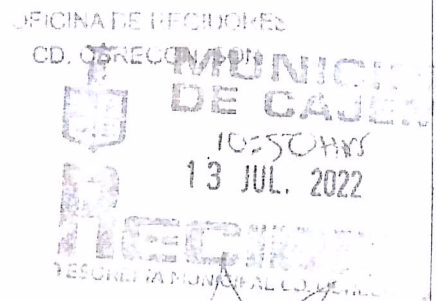 OFICINA DE REGIDORES
CD. OBREGON
MUNICI
DE CAJEM
10:50 HRS
13 JUL. 2022
RECI
TESORERIA MUNICIPAL CD. OBREG